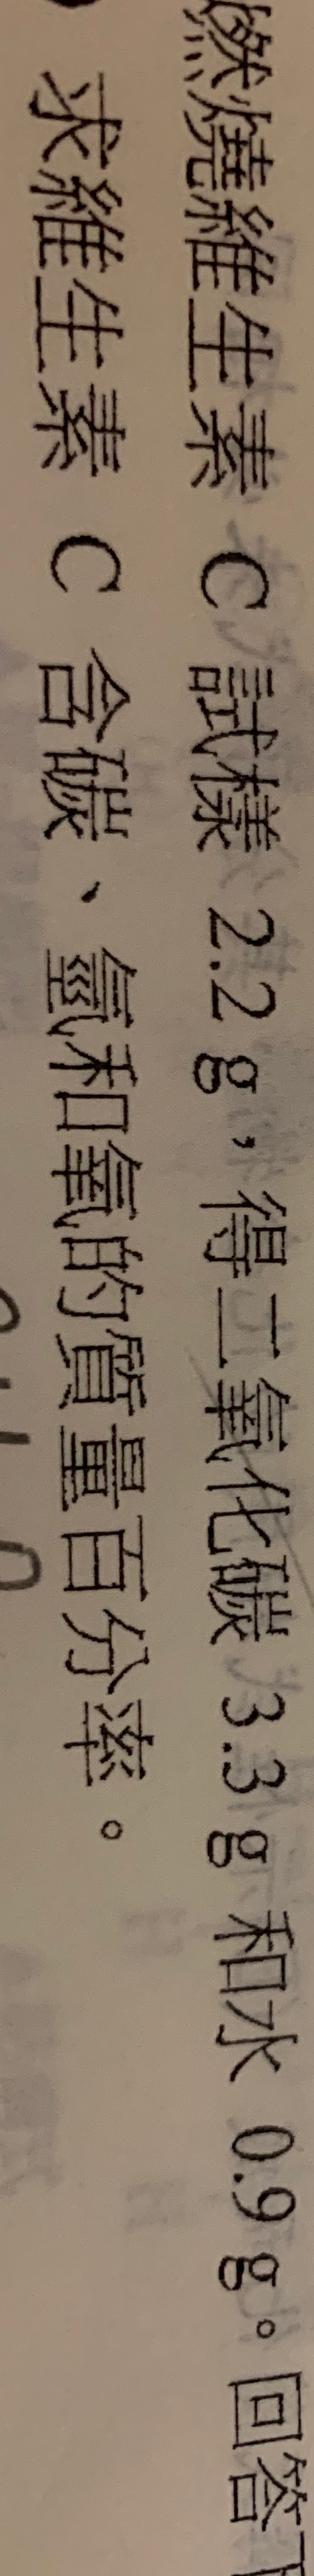 燃燒維生素 C 試樣 2.2 g，得二氧化碳 3.3 g 和水 0.9 g。回答
求維生素 C 含碳、氫和氧的質量百分率。